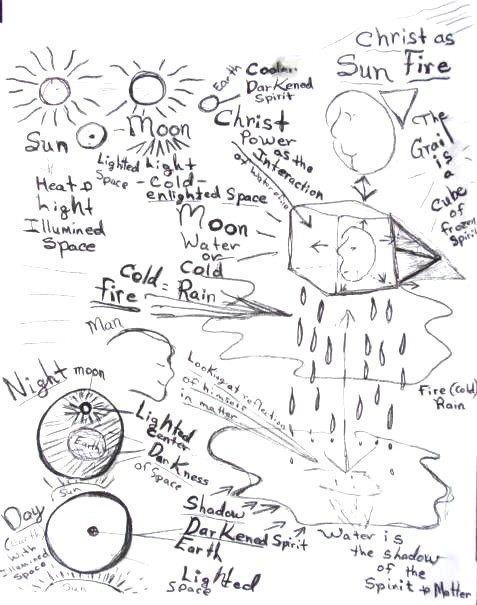 Christ as
Sun Fire
Earth
Cooler
Darkened
Spirit
Christ
Power
as the
Interaction
of Water + Fire
The
Grail
is
a
Cube
of
frozen
Spirit
Sun
Moon
Heat +
Light
Illumined
Space
Lighted Light
Space - Cold -
enlighted Space
Moon
Water
or
Cold
Cold = Rain
fire
Man
Looking at reflection
of himself
in matter
Fire (Cold)
Rain
Night
moon
Earth
Sun
Lighted
Center
Darkness
of Space
Day
(Earth
With
Illumined
Space)
Sun
Shadow
Darkened Spirit
Earth
Lighted
Space
Water is
the shadow
of the
Spirit + Matter